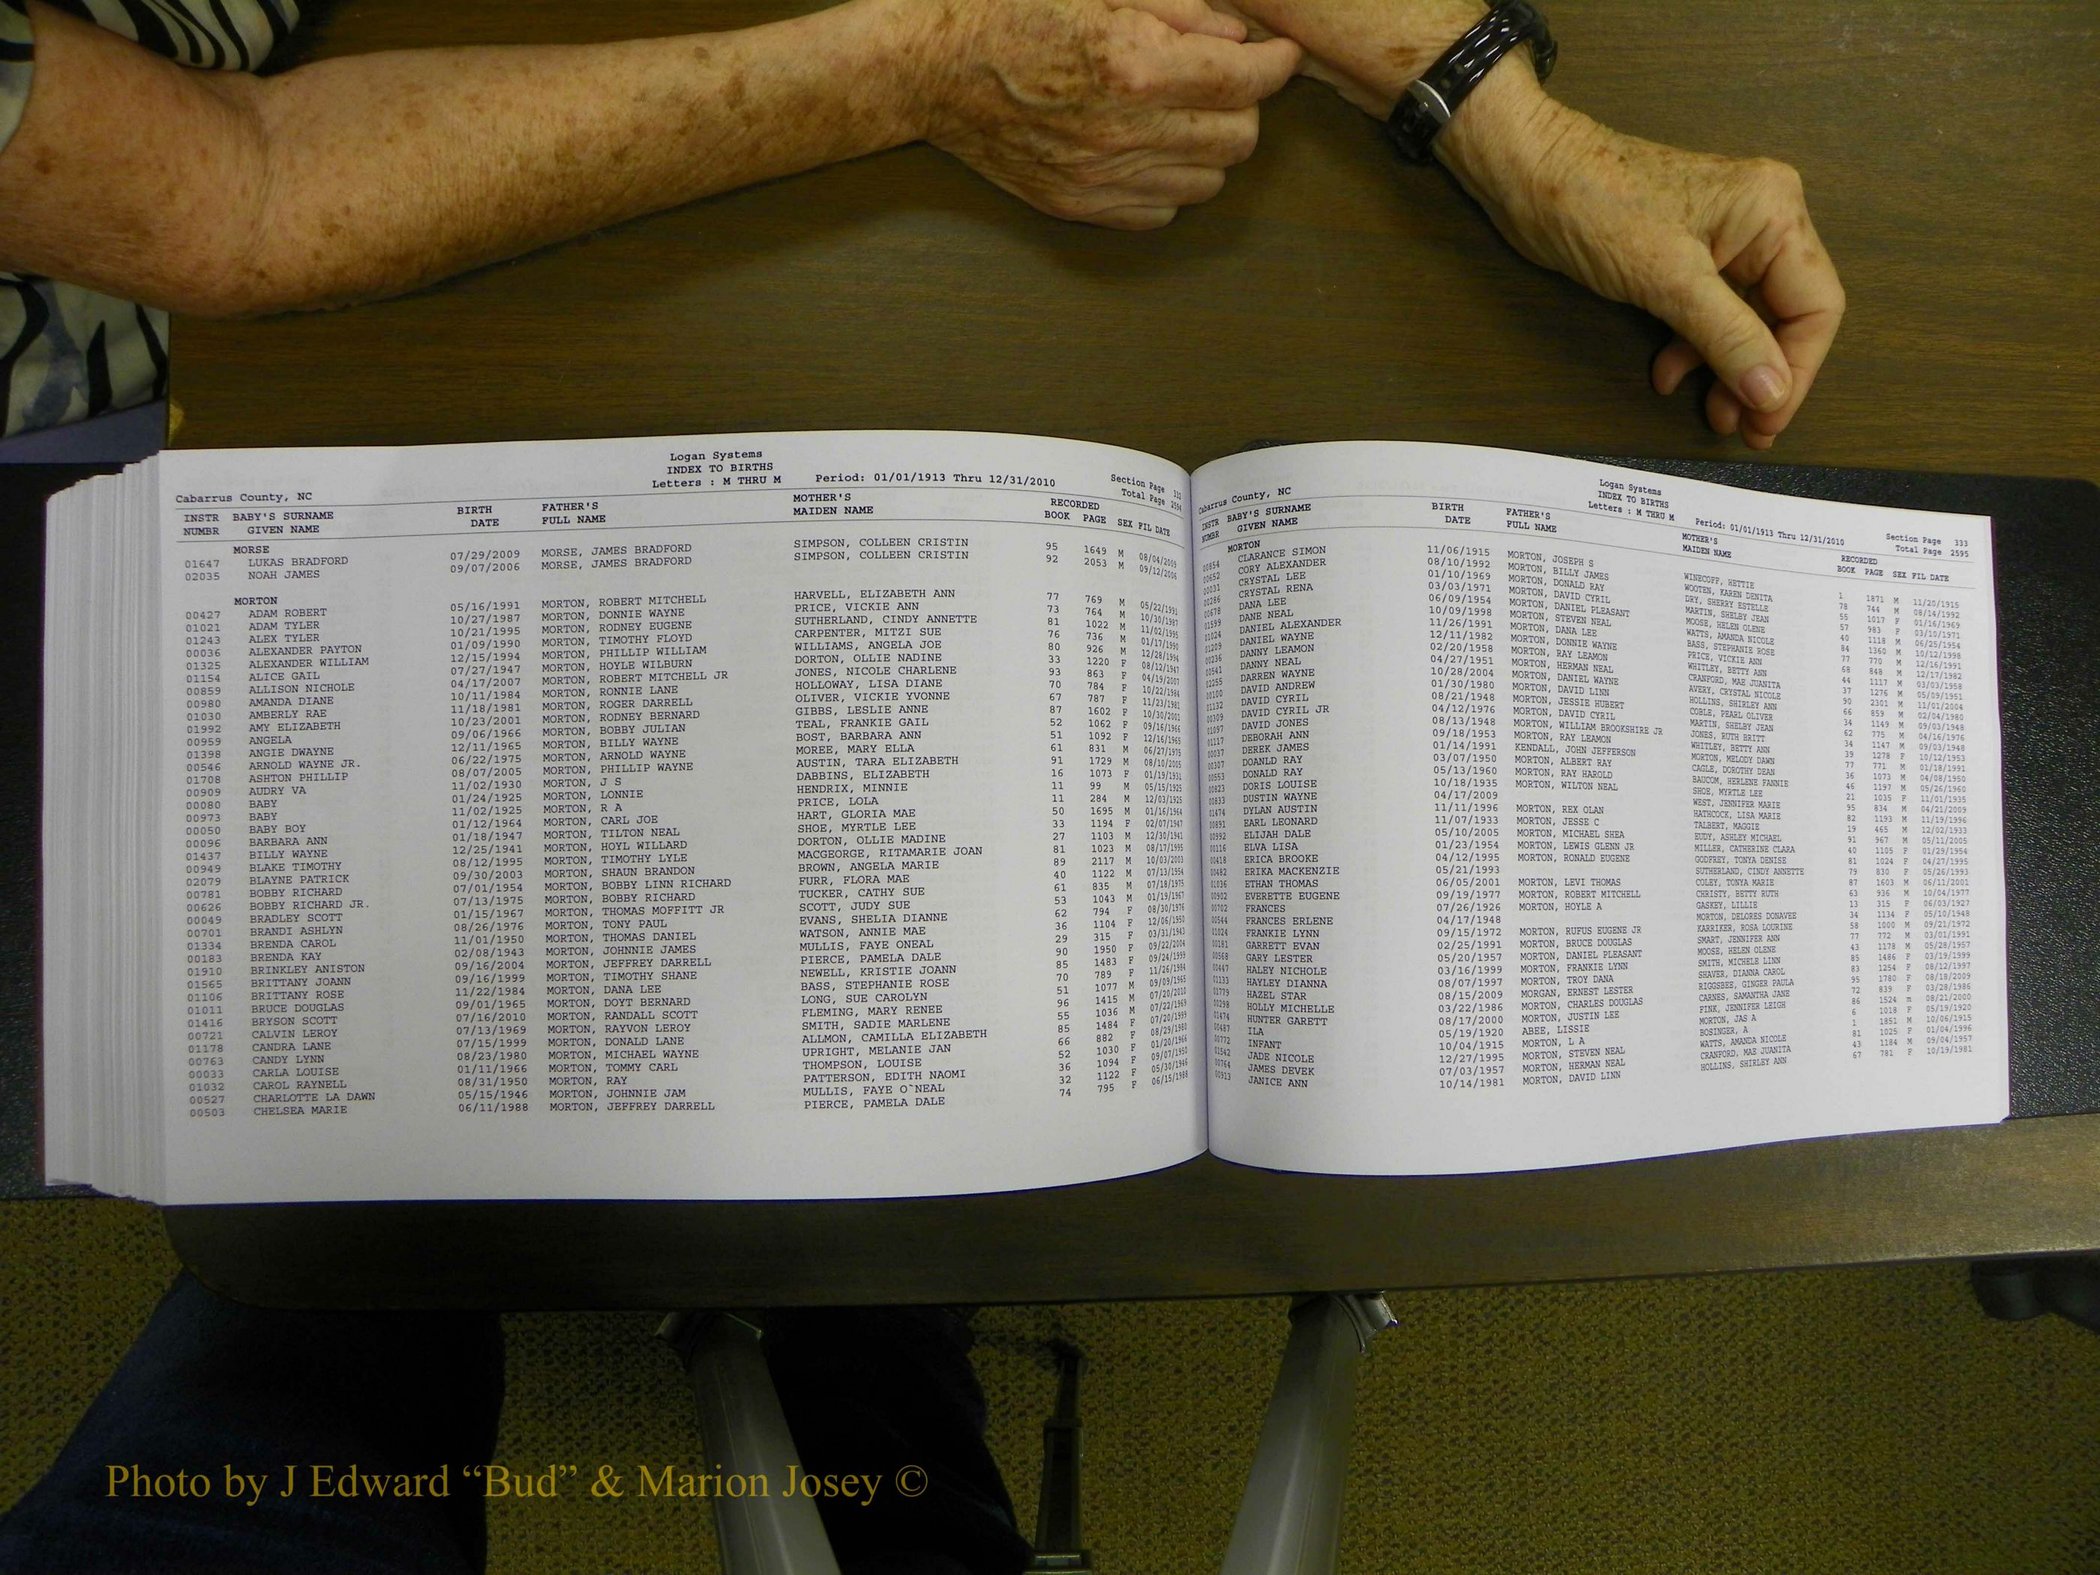 Logan Systems
INDEX TO BIRTHS
Letters : M THRU M Period: 01/01/1913 Thru 12/31/2010
Section Page 332
Total Page 2594
Cabarrus County, NC
INSTR BABY'S SURNAME BIRTH FATHER'S MOTHER'S RECORDED
NUMBR GIVEN NAME DATE FULL NAME MAIDEN NAME BOOK PAGE SEX FIL DATE
MORSE
01647 LUKAS BRADFORD 07/29/2009 MORSE, JAMES BRADFORD SIMPSON, COLLEEN CRISTIN 95 1649 M 08/04/2009
02035 NOAH JAMES 09/07/2006 MORSE, JAMES BRADFORD SIMPSON, COLLEEN CRISTIN 92 2053 M 09/12/2006
MORTON
00427 ADAM ROBERT 05/16/1991 MORTON, ROBERT MITCHELL HARVELL, ELIZABETH ANN 77 769 M 05/22/1991
01021 ADAM TYLER 10/27/1987 MORTON, DONNIE WAYNE PRICE, VICKIE ANN 73 764 M 10/30/1987
01243 ALEX TYLER 10/21/1995 MORTON, RODNEY EUGENE SUTHERLAND, CINDY ANNETTE 81 1022 M 11/02/1995
00036 ALEXANDER PAYTON 01/09/1990 MORTON, TIMOTHY FLOYD CARPENTER, MITZI SUE 76 736 M 01/17/1990
01325 ALEXANDER WILLIAM 12/15/1994 MORTON, PHILLIP WILLIAM WILLIAMS, ANGELA JOE 80 926 M 12/28/1994
01154 ALICE GAIL 07/27/1947 MORTON, HOYLE WILBURN DORTON, OLLIE NADINE 33 1220 F 08/12/1947
00859 ALLISON NICHOLE 04/17/2007 MORTON, ROBERT MITCHELL JR JONES, NICOLE CHARLENE 93 863 F 04/19/2007
00980 AMANDA DIANE 10/11/1984 MORTON, RONNIE LANE HOLLOWAY, LISA DIANE 70 784 F 10/22/1984
01030 AMBERLY RAE 11/18/1981 MORTON, ROGER DARRELL OLIVER, VICKIE YVONNE 67 787 F 11/23/1981
01992 AMY ELIZABETH 10/23/2001 MORTON, RODNEY BERNARD GIBBS, LESLIE ANNE 87 1602 F 10/30/2001
00959 ANGELA 09/06/1966 MORTON, BOBBY JULIAN TEAL, FRANKIE GAIL 52 1062 F 09/16/1966
01398 ANGIE DWAYNE 12/11/1965 MORTON, BILLY WAYNE BOST, BARBARA ANN 51 1092 F 12/16/1965
00546 ARNOLD WAYNE JR. 06/22/1975 MORTON, ARNOLD WAYNE MOREE, MARY ELLA 61 831 M 06/27/1975
01708 ASHTON PHILLIP 08/07/2005 MORTON, PHILLIP WAYNE AUSTIN, TARA ELIZABETH 91 1729 M 08/10/2005
00909 AUDRY VA 11/02/1930 MORTON, J S DABBINS, ELIZABETH 16 1073 F 01/19/1931
00080 BABY 01/24/1925 MORTON, LONNIE HENDRIX, MINNIE 11 99 M 05/15/1925
00973 BABY 11/02/1925 MORTON, R A PRICE, LOLA 11 284 M 12/03/1925
00050 BABY BOY 01/12/1964 MORTON, CARL JOE HART, GLORIA MAE 50 1695 M 01/16/1964
00096 BARBARA ANN 01/18/1947 MORTON, TILTON NEAL SHOE, MYRTLE LEE 33 1194 F 02/07/1947
01437 BILLY WAYNE 12/25/1941 MORTON, HOYL WILLARD DORTON, OLLIE MADINE 27 1103 M 12/30/1941
00949 BLAKE TIMOTHY 08/12/1995 MORTON, TIMOTHY LYLE MACGEORGE, RITAMARIE JOAN 81 1023 M 08/17/1995
02079 BLAYNE PATRICK 09/30/2003 MORTON, SHAUN BRANDON BROWN, ANGELA MARIE 89 2117 M 10/03/2003
00781 BOBBY RICHARD 07/01/1954 MORTON, BOBBY LINN RICHARD FURR, FLORA MAE 40 1122 M 07/13/1954
00626 BOBBY RICHARD JR. 07/13/1975 MORTON, BOBBY RICHARD TUCKER, CATHY SUE 61 835 M 07/18/1975
00049 BRADLEY SCOTT 01/15/1967 MORTON, THOMAS MOFFITT JR SCOTT, JUDY SUE 53 1043 M 01/19/1967
00701 BRANDI ASHLYN 08/26/1976 MORTON, TONY PAUL EVANS, SHELIA DIANNE 62 794 F 08/30/1976
01334 BRENDA CAROL 11/01/1950 MORTON, THOMAS DANIEL WATSON, ANNIE MAE 36 1104 F 12/06/1950
00183 BRENDA KAY 02/08/1943 MORTON, JOHNNIE JAMES MULLIS, FAYE ONEAL 29 315 F 03/31/1943
01910 BRINKLEY ANISTON 09/16/2004 MORTON, JEFFREY DARRELL PIERCE, PAMELA DALE 90 1950 F 09/22/2004
01565 BRITTANY JOANN 09/16/1999 MORTON, TIMOTHY SHANE NEWELL, KRISTIE JOANN 85 1483 F 09/24/1999
01106 BRITTANY ROSE 11/22/1984 MORTON, DANA LEE BASS, STEPHANIE ROSE 70 789 F 11/26/1984
01011 BRUCE DOUGLAS 09/01/1965 MORTON, DOYT BERNARD LONG, SUE CAROLYN 51 1077 M 09/09/1965
01416 BRYSON SCOTT 07/16/2010 MORTON, RANDALL SCOTT FLEMING, MARY RENEE 96 1415 M 07/20/2010
00721 CALVIN LEROY 07/13/1969 MORTON, RAYVON LEROY SMITH, SADIE MARLENE 55 1036 M 07/22/1969
01178 CANDRA LANE 07/15/1999 MORTON, DONALD LANE ALLMON, CAMILLA ELIZABETH 85 1484 F 07/20/1999
00763 CANDY LYNN 08/23/1980 MORTON, MICHAEL WAYNE UPRIGHT, MELANIE JAN 66 882 F 08/29/1980
00033 CARLA LOUISE 01/11/1966 MORTON, TOMMY CARL THOMPSON, LOUISE 52 1030 F 01/20/1966
01032 CAROL RAYNELL 08/31/1950 MORTON, RAY PATTERSON, EDITH NAOMI 36 1094 F 09/07/1950
00527 CHARLOTTE LA DAWN 05/15/1946 MORTON, JOHNNIE JAM MULLIS, FAYE O`NEAL 32 1122 F 05/30/1946
00503 CHELSEA MARIE 06/11/1988 MORTON, JEFFREY DARRELL PIERCE, PAMELA DALE 74 795 F 06/15/1988
Logan Systems
INDEX TO BIRTHS
Letters : M THRU M Period: 01/01/1913 Thru 12/31/2010
Section Page 333
Total Page 2595
Cabarrus County, NC
INSTR BABY'S SURNAME BIRTH FATHER'S MOTHER'S RECORDED
NUMBR GIVEN NAME DATE FULL NAME MAIDEN NAME BOOK PAGE SEX FIL DATE
MORTON
00854 CLARANCE SIMON 11/06/1915 MORTON, JOSEPH S WINECOFF, HETTIE 1 1871 M 11/20/1915
00652 CORY ALEXANDER 08/10/1992 MORTON, BILLY JAMES WOOTEN, KAREN DENITA 78 744 M 08/14/1992
00031 CRYSTAL LEE 01/10/1969 MORTON, DONALD RAY DRY, SHERRY ESTELLE 55 1017 F 01/16/1969
00286 CRYSTAL RENA 03/03/1971 MORTON, DAVID CYRIL MARTIN, SHELBY JEAN 57 983 F 03/10/1971
00678 DANA LEE 06/09/1954 MORTON, DANIEL PLEASANT MOOSE, HELEN OLENE 40 1118 M 06/25/1954
01599 DANE NEAL 10/09/1998 MORTON, STEVEN NEAL WATTS, AMANDA NICOLE 84 1360 M 10/12/1998
01024 DANIEL ALEXANDER 11/26/1991 MORTON, DANA LEE BASS, STEPHANIE ROSE 77 770 M 12/16/1991
01209 DANIEL WAYNE 12/11/1982 MORTON, DONNIE WAYNE PRICE, VICKIE ANN 68 848 M 12/17/1982
00236 DANNY LEAMON 02/20/1958 MORTON, RAY LEAMON WHITLEY, BETTY ANN 44 1117 M 03/03/1958
00541 DANNY NEAL 04/27/1951 MORTON, HERMAN NEAL CRANFORD, MAE JUANITA 37 1276 M 05/09/1951
02255 DARREN WAYNE 10/28/2004 MORTON, DANIEL WAYNE AVERY, CRYSTAL NICOLE 90 2301 M 11/01/2004
00100 DAVID ANDREW 01/30/1980 MORTON, DAVID LINN HOLLINS, SHIRLEY ANN 66 859 M 02/04/1980
01132 DAVID CYRIL 08/21/1948 MORTON, JESSIE HUBERT COBLE, PEARL OLIVER 34 1149 M 09/03/1948
00309 DAVID CYRIL JR 04/12/1976 MORTON, DAVID CYRIL MARTIN, SHELBY JEAN 62 775 M 04/16/1976
01097 DAVID JONES 08/13/1948 MORTON, WILLIAM BROOKSHIRE JR JONES, RUTH BRITT 34 1147 M 09/03/1948
01117 DEBORAH ANN 09/18/1953 MORTON, RAY LEAMON WHITLEY, BETTY ANN 39 1278 F 10/12/1953
00037 DEREK JAMES 01/14/1991 KENDALL, JOHN JEFFERSON MORTON, MELODY DAWN 77 771 M 01/18/1991
00307 DOANLD RAY 03/07/1950 MORTON, ALBERT RAY CAGLE, DOROTHY DEAN 36 1073 M 04/08/1950
00553 DONALD RAY 05/13/1960 MORTON, RAY HAROLD BAUCOM, HERLENE FANNIE 46 1197 M 05/26/1960
00823 DORIS LOUISE 10/18/1935 MORTON, WILTON NEAL SHOE, MYRTLE LEE 21 1035 F 11/01/1935
00833 DUSTIN WAYNE 04/17/2009 WEST, JENNIFER MARIE 95 834 M 04/21/2009
01474 DYLAN AUSTIN 11/11/1996 MORTON, REX OLAN HATHCOCK, LISA MARIE 82 1193 M 11/19/1996
00891 EARL LEONARD 11/07/1933 MORTON, JESSE C TALBERT, MAGGIE 19 465 M 12/02/1933
00992 ELIJAH DALE 05/10/2005 MORTON, MICHAEL SHEA EUDY, ASHLEY MICHAEL 91 967 M 05/11/2005
00116 ELVA LISA 01/23/1954 MORTON, LEWIS GLENN JR MILLER, CATHERINE CLARA 40 1105 F 01/29/1954
00418 ERICA BROOKE 04/12/1995 MORTON, RONALD EUGENE GODFREY, TONYA DENISE 81 1024 F 04/27/1995
00482 ERIKA MACKENZIE 05/21/1993 SUTHERLAND, CINDY ANNETTE 79 830 F 05/26/1993
01036 ETHAN THOMAS 06/05/2001 MORTON, LEVI THOMAS COLEY, TONYA MARIE 87 1603 M 06/11/2001
00902 EVERETTE EUGENE 09/19/1977 MORTON, ROBERT MITCHELL CHRISTY, BETTY RUTH 63 936 M 10/04/1977
00702 FRANCES 07/26/1926 MORTON, HOYLE A GASKEY, LILLIE 13 315 F 06/03/1927
00544 FRANCES ERLENE 04/17/1948 MORTON, DELORES DONAVEE 34 1134 F 05/10/1948
01024 FRANKIE LYNN 09/15/1972 MORTON, RUFUS EUGENE JR KARRIKER, ROSA LOURINE 58 1000 M 09/21/1972
00181 GARRETT EVAN 02/25/1991 MORTON, BRUCE DOUGLAS SMART, JENNIFER ANN 77 772 M 03/01/1991
00568 GARY LESTER 05/20/1957 MORTON, DANIEL PLEASANT MOOSE, HELEN OLENE 43 1178 M 05/28/1957
00447 HALEY NICHOLE 03/16/1999 MORTON, FRANKIE LYNN SMITH, MICHELE LINN 85 1486 F 03/19/1999
01133 HAYLEY DIANNA 08/07/1997 MORTON, TROY DANA SHAVER, DIANNA CAROL 83 1254 F 08/12/1997
01779 HAZEL STAR 08/15/2009 MORGAN, ERNEST LESTER RIGGSBEE, GINGER PAULA 95 1780 F 08/18/2009
00298 HOLLY MICHELLE 03/22/1986 MORTON, CHARLES DOUGLAS CARNES, SAMANTHA JANE 72 839 F 03/28/1986
01474 HUNTER GARETT 08/17/2000 MORTON, JUSTIN LEE FINK, JENNIFER LEIGH 86 1524 m 08/21/2000
00487 ILA 05/19/1920 ABEE, LISSIE MORTON, JAS A 6 1018 F 05/19/1920
00772 INFANT 10/04/1915 MORTON, L A BOSINGER, A 1 1851 M 10/06/1915
01542 JADE NICOLE 12/27/1995 MORTON, STEVEN NEAL WATTS, AMANDA NICOLE 81 1025 F 01/04/1996
00764 JAMES DEVEK 07/03/1957 MORTON, HERMAN NEAL CRANFORD, MAE JUANITA 43 1184 M 09/04/1957
00913 JANICE ANN 10/14/1981 MORTON, DAVID LINN HOLLINS, SHIRLEY ANN 67 781 F 10/19/1981
Photo by J Edward “Bud” & Marion Josey ©